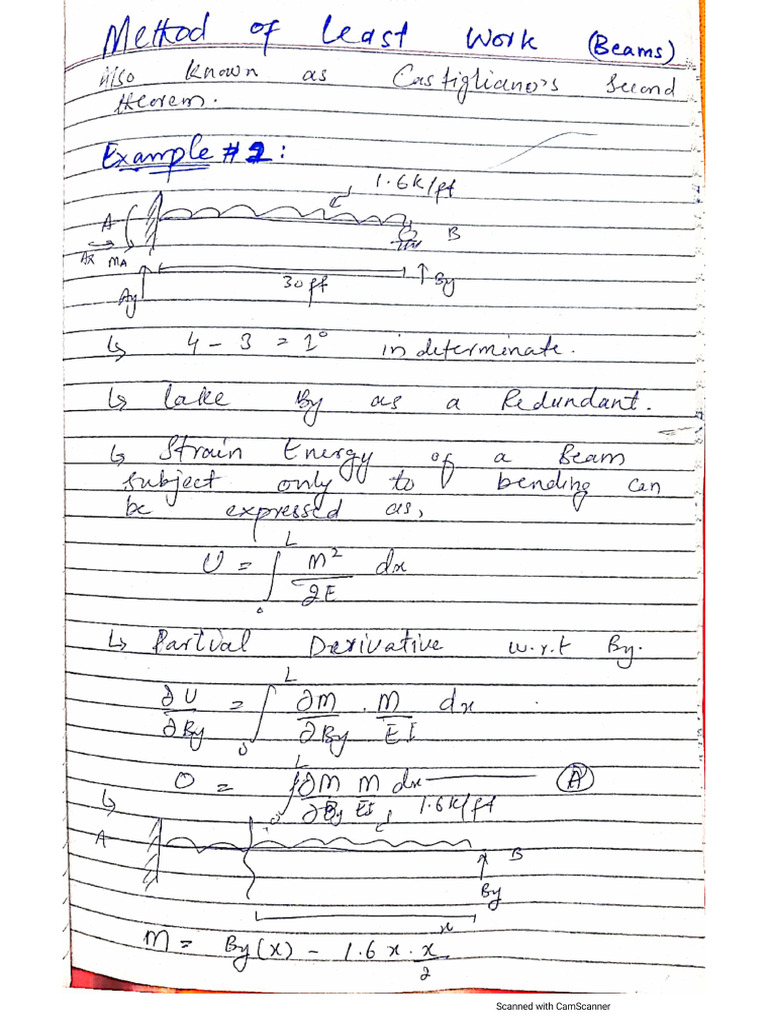 Method of Least Work (Beams)
Also known as Castigliano's Second
theorem.
Example # 2:
1.6K/ft
A
B
Ax MA
30ft
By
Ay
↳ 4 - 3 = 1° indeterminate.
↳ Take By as a Redundant.
↳ Strain Energy of a Beam
subject only to bending can
be expressed as,
U = ∫₀ᴸ M²/2E dx
↳ Partial Derivative w.r.t By.
∂U/∂By = ∫₀ᴸ ∂M/∂By . M/EI dx
0 = ∫₀ᴸ ∂M/∂By M/EI dx — A
↳
1.6K/ft
A
B
By
x
M = By(x) - 1.6 x . x/2
Scanned with CamScanner